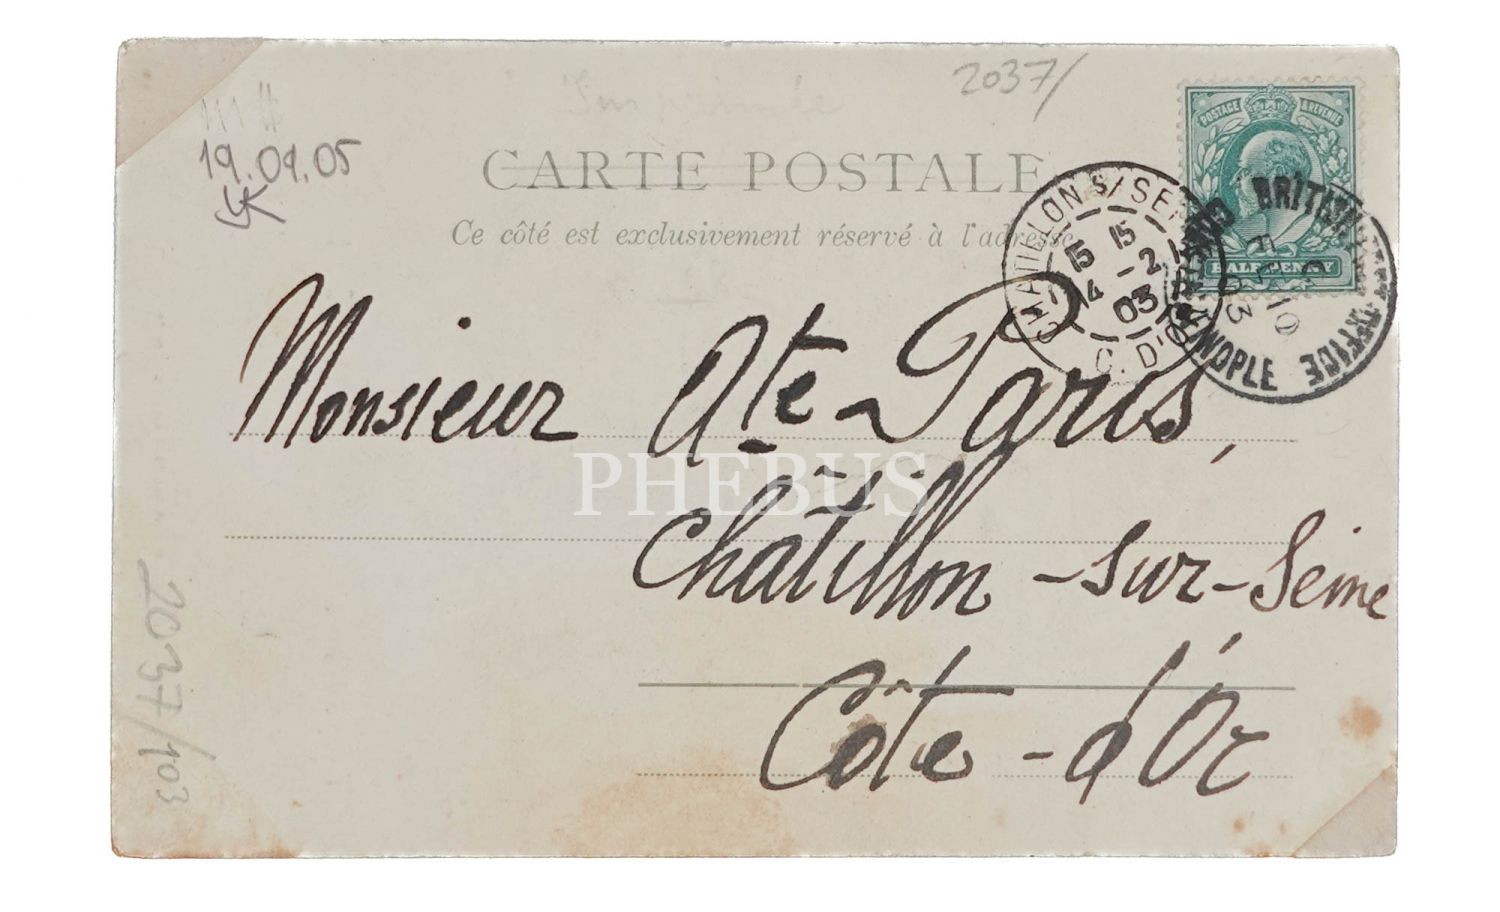 2037/
19.01.05
CARTE POSTALE
Ce côté est exclusivement réservé à l'adresse
POSTAGE & REVENUE
HALFPENNY
CHATILLON S/ SEINE
15 15
4 -2
03
C. D'OR
BRITISH POST OFFICE
CONSTANTINOPLE
C
FE 10
03
Monsieur Ate Paris,
Châtillon-sur-Seine
Côte-d'Or
PHEBUS
2037/103